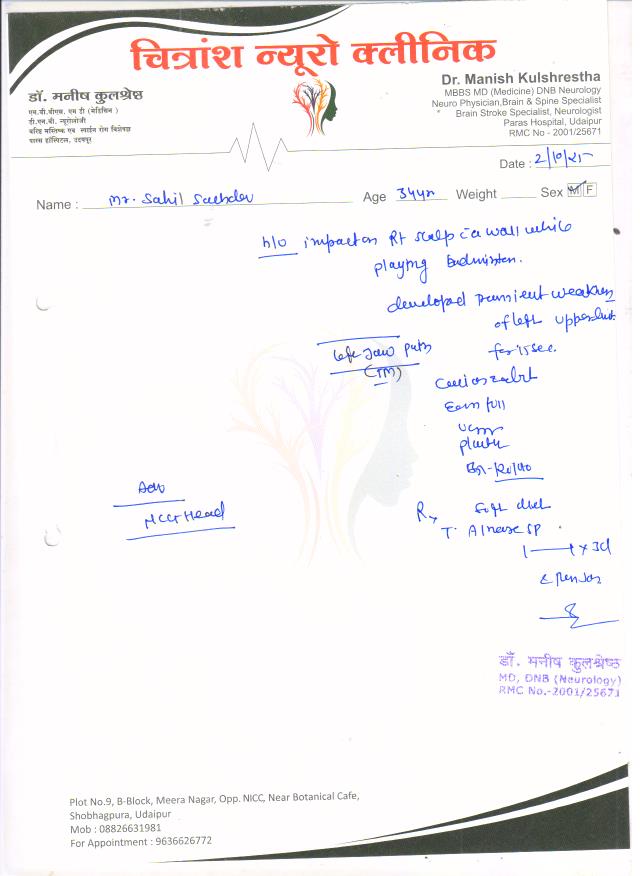 चित्रांश न्यूरो क्लीनिक
डॉ. मनीष कुलश्रेष्ठ
एम.बी.बी.एस. एम डी (मेडिसिन)
डी.एन.बी. न्यूरोलॉजी
वरिष्ठ मस्तिष्क एवं स्पाईन रोग विशेषज्ञ
पारस हॉस्पिटल, उदयपुर
Dr. Manish Kulshrestha
MBBS MD (Medicine) DNB Neurology
Neuro Physician,Brain & Spine Specialist
Brain Stroke Specialist, Neurologist
Paras Hospital, Udaipur
RMC No - 2001/25671
Date : 2/10/25
Name : Mr. Sahil Sachdev Age 34yr Weight Sex M F
h/o impact on Rt scalp c a wall while
playing badminton.
developed transient weakness
of left upper limb
for 15 sec.
left Jaw pain
(TM)
Conscious
plantar
Adv
NCCT Head
Rx Soft diet
T. SP
1 1 x 3d
डॉ. मनीष कुलश्रेष्ठ
MD, DNB (Neurology)
RMC No.-2001/25671
Plot No.9, B-Block, Meera Nagar, Opp. NICC, Near Botanical Cafe,
Shobhagpura, Udaipur
Mob : 08826631981
For Appointment : 9636626772